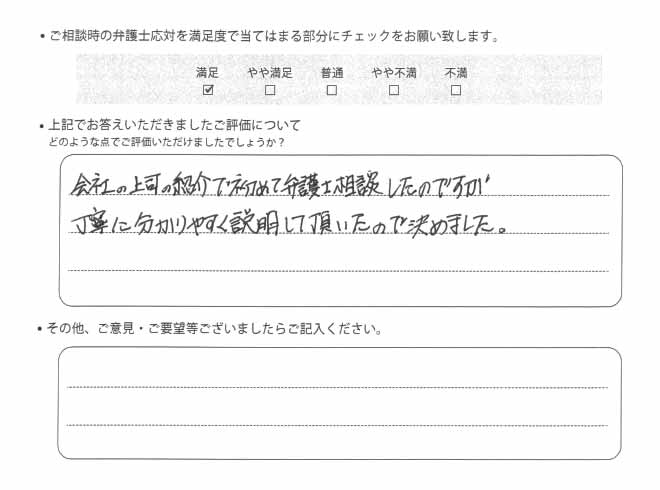 ・ご相談時の弁護士応対を満足度で当てはまる部分にチェックをお願い致します。
満足 やや満足 普通 やや不満 不満
☑ ☐ ☐ ☐ ☐
・上記でお答えいただきましたご評価について
どのような点でご評価いただけましたでしょうか？
会社の上司の紹介で初めて弁護士相談したのですが
丁寧に分かりやすく説明して頂いたので決めました。
・その他、ご意見・ご要望等ございましたらご記入ください。